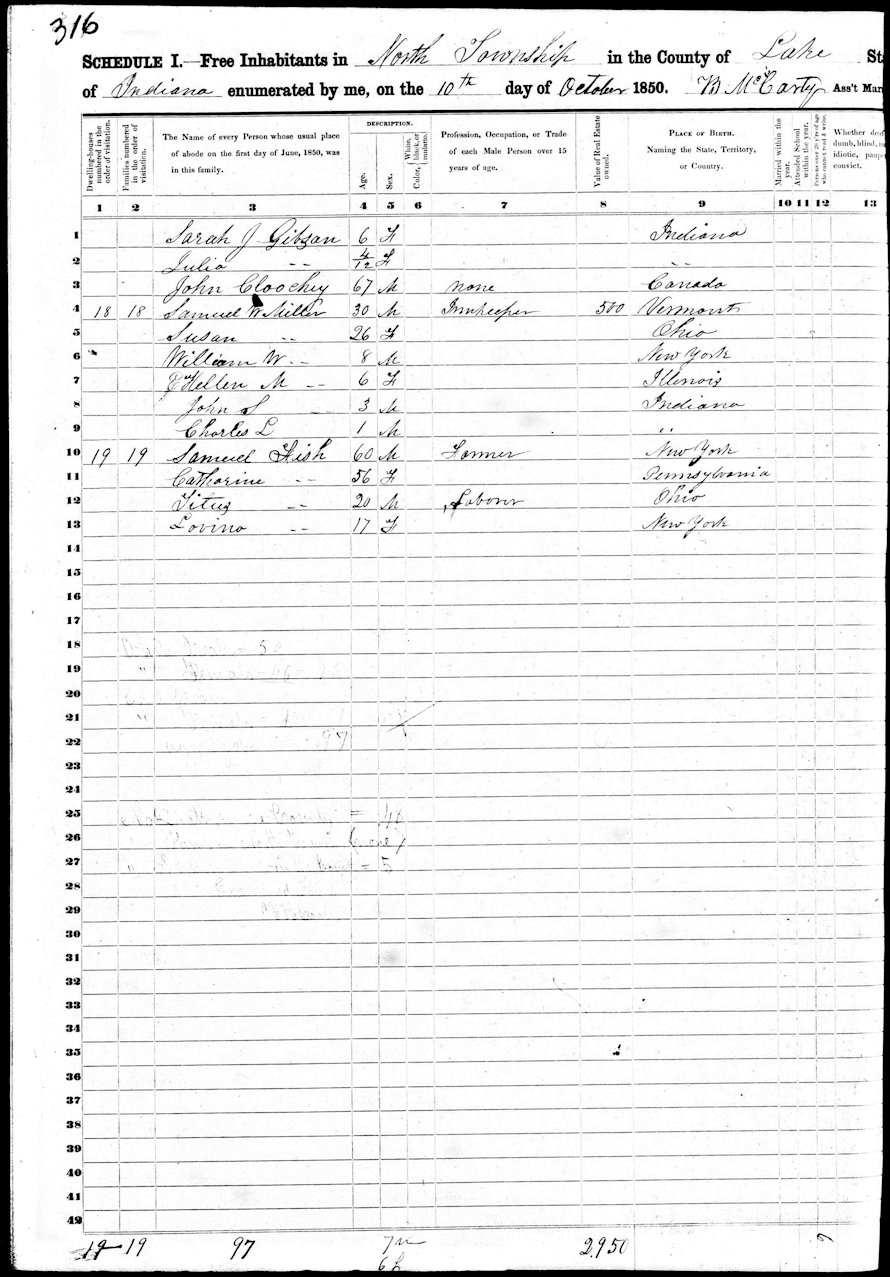 316
SCHEDULE I.—Free Inhabitants in North Township in the County of Lake
of Indiana enumerated by me, on the 10th day of October 1850. B McCarty Ass't Mar
Dwelling-houses numbered in the order of visitation.
Families numbered in the order of visitation.
The Name of every Person whose usual place of abode on the first day of June, 1850, was in this family.
DESCRIPTION.
Age.
Sex.
Color, { White, black, or mulatto.
Profession, Occupation, or Trade of each Male Person over 15 years of age.
Value of Real Estate owned.
PLACE OF BIRTH. Naming the State, Territory, or Country.
Married within the year.
Attended School within the year.
Persons over 20 y'rs of age who cannot read & write.
Whether deaf dumb, blind, idiotic, convict.
1 2 3 4 5 6 7 8 9 10 11 12 13
1 Sarah J Gibson 6 F Indiana
2 Julia -- 4/12 F --
3 John Cloochey 67 M none Canada
4 18 18 Samuel W Miller 30 M Innkeeper 500 Vermont
5 Susan -- 26 F Ohio
6 William W -- 8 M New York
7 Hellen M -- 6 F Illinois
8 John S -- 3 M Indiana
9 Charles L 1 M "
10 19 19 Samuel Fish 60 M Farmer New York
11 Catharine -- 56 F Pennsylvania
12 Titus -- 20 M Laborer Ohio
13 Lovina -- 17 F New York
14
15
16
17
18
19
20
21
22 97
23
24
25
26
27 = 5
28
29
30
31
32
33
34
35
36
37
38
39
40
41
42
19 19 97 7m 2950
6f